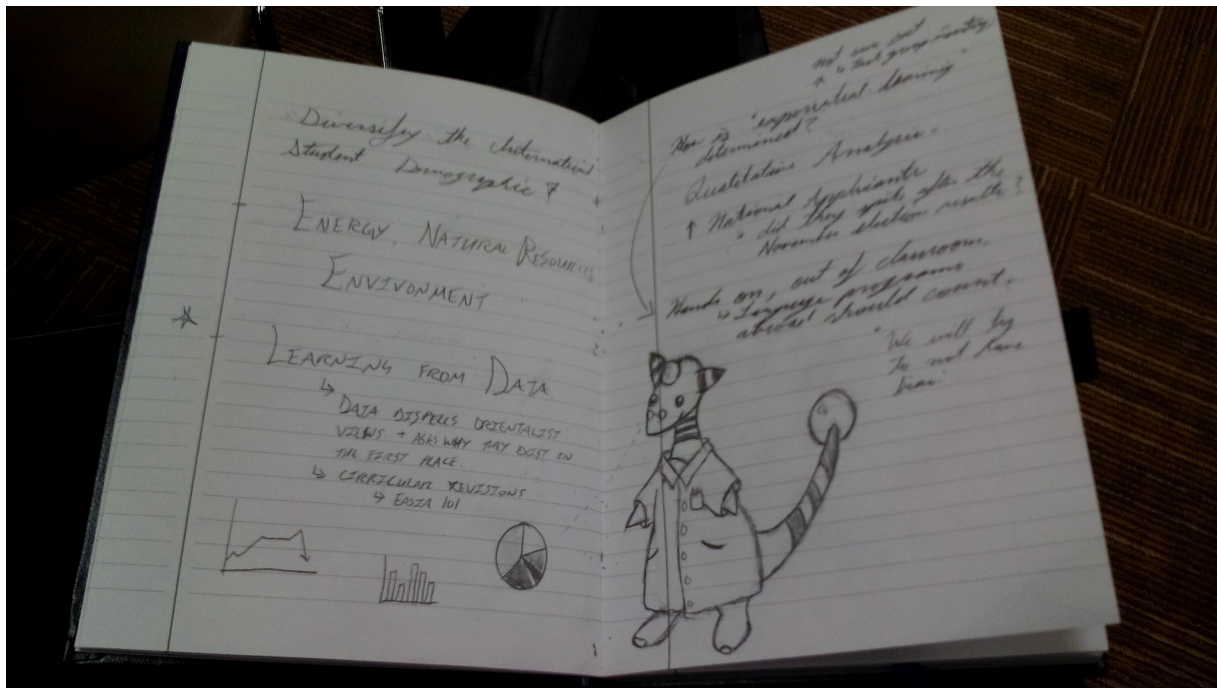 Diversify the International
Student Demographic &
ENERGY, NATURAL RESOURCES
ENVIVONMENT
LEARNING FROM DATA
↳ DATA DISPELLS ORIENTALIST
VIEWS + ASKS WHY THEY EXIST IN
THE FIRST PLACE.
↳ CIRRICULAR REVISIONS
↳ EASIA 101
not sun
↳
How is "experiential learning"
determined?
Qualitative Analysis.
↑ National Applicants
↳ did they spike after the
November election results?
Hands on, out of classroom.
↳ Language programs
abroad should count.
"We will try
to not have
bias"